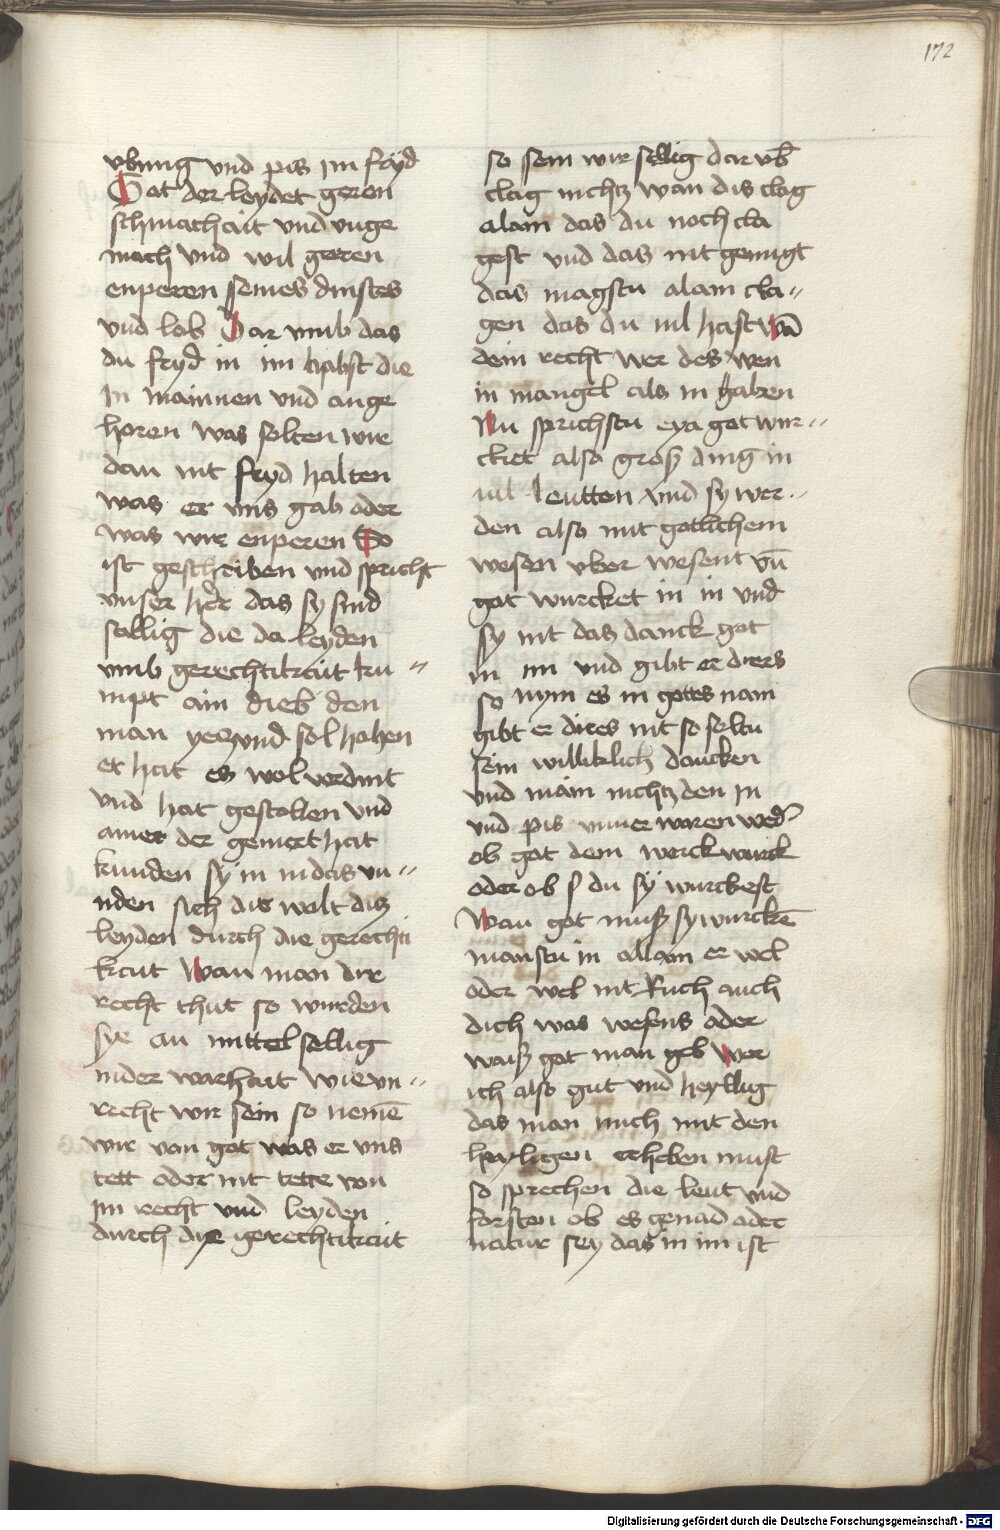 172
vbung vnd pis im fryd
Got der leydet geren
schmachait vnd vnge
mach vnd wil geren
enperen seines dinstes
vnd lob Dar vmb das
du fryd in im habst die
in mainnen vnd ange
horen was solten wir
dan nit fryd halten
was er vns gab oder
was wir enperen So
ist geschriben vnd spricht
vnser her das sy sind
sallig die da leyden
vmb gerechtikait ku〃
mpt ain dieb den
man yeczund sol hahen
er hat es wol verdint
vnd hat gestollen vnd
ainer der gemert hat
kunden sy in in das vn〃
nden sich die wolt dis
leyden durch die gerechti
kait Wan man dir
recht thut so wurden
sye an mittel sellig
in der warhait wie vn〃
recht wir sein so nemē
wir von got was er vns
tett oder nit tette von
im recht vnd leyden
durch dye gerechtikait
so sein wir sellig dar vb
clag nichtz wan dis clag
alain das du noch cla
gest vnd das nit genugt
das magstu alain cla〃
gen das du uil hast wā
dein recht wer des wen
in mangel als in haben
Nu sprichstu eya got wur〃
cket also gros ding in
uil leutten vnd sy wer〃
den also mit gotlichem
wesen vber wesent vn̄
got wurcket in in vnd
sy nit das danck got
in im vnd gibt er dirs
so nym es in gottes nam
gibt er dires nit so soltu
sein williklich dancken
vnd main nichtz den in
vnd pis vnuerworen weder
ob got dein werck wurck
oder ob s du sy wurckest
Wan got mus sy wurckē
manstu in allain er wel
oder wel nit Ruch auch
dich was wesens oder
wais got man geb Wer
ich also gut vnd heyllig
das man mich mit den
hayligen erheben must
so sprechen die leut vnd
forsten ob es genad oder
natur sey das in im ist
Digitalisierung gefördert durch die Deutsche Forschungsgemeinschaft - DFG